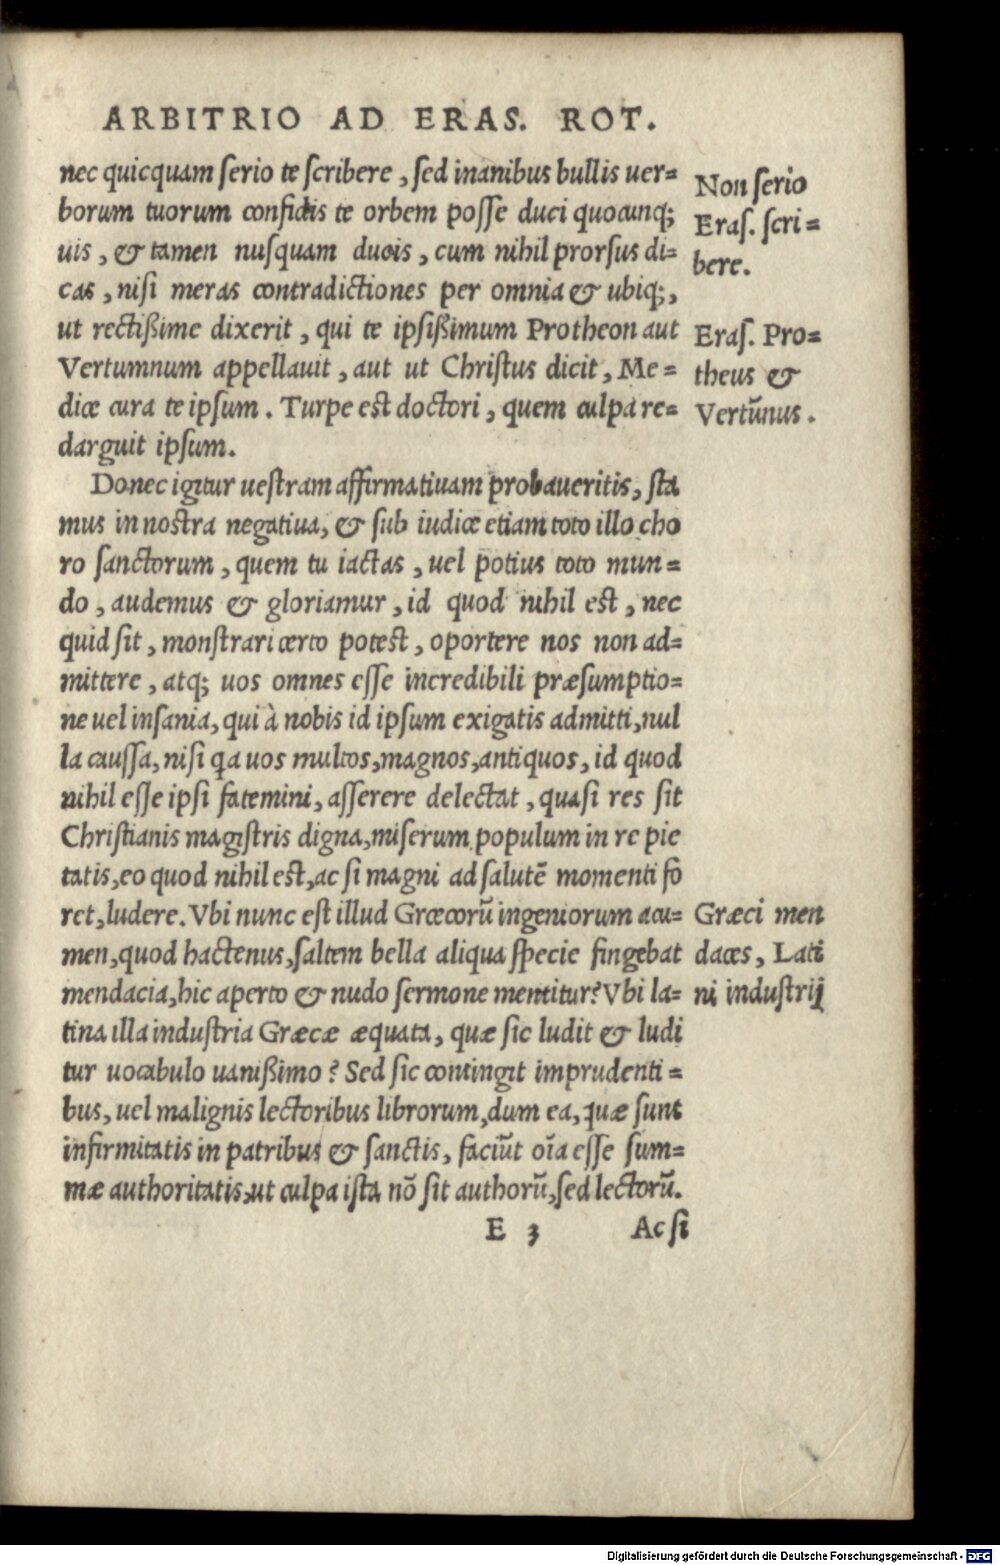 ARBITRIO AD ERAS. ROT.
nec quicquam serio te scribere, sed inanibus bullis uer=
borum tuorum confidis te orbem posse duci quocunq;
uis, & tamen nusquam ducis, cum nihil prorsus di=
cas, nisi meras contradictiones per omnia & ubiq;,
ut rectißime dixerit, qui te ipsißimum Protheon aut
Vertumnum appellauit, aut ut Christus dicit, Me=
dice cura te ipsum. Turpe est doctori, quem culpa re=
darguit ipsum.
Non serio
Eras. scri=
bere.
Eras. Pro=
theus &
Vertũnus.
Donec igitur uestram affirmatiuam probaueritis, sta
mus in nostra negatiua, & sub iudice etiam toto illo cho
ro sanctorum, quem tu iactas, uel potius toto mun=
do, audemus & gloriamur, id quod nihil est, nec
quid sit, monstrari certo potest, oportere nos non ad=
mittere, atq; uos omnes esse incredibili præsumptio=
ne uel insania, qui à nobis id ipsum exigatis admitti, nul
la caussa, nisi qa uos multos, magnos, antiquos, id quod
nihil esse ipsi fatemini, asserere delectat, quasi res sit
Christianis magistris digna, miserum populum in re pie
tatis, eo quod nihil est, ac si magni ad salutẽ momenti fo
ret, ludere. Vbi nunc est illud Græcorũ ingeniorum acu=
men, quod hactenus, saltem bella aliqua specie fingebat
mendacia, hic aperto & nudo sermone mentitur? Vbi la=
tina illa industria Græcæ æquata, quæ sic ludit & ludi
tur uocabulo uanißimo? Sed sic contingit imprudenti=
bus, uel malignis lectoribus librorum, dum ea, quæ sunt
infirmitatis in patribus & sanctis, faciũt oĩa esse sum=
mæ authoritatis, ut culpa ista nõ sit authorũ, sed lectorũ.
Græci men
daces, Lati
ni industrij
E 3 Ac si
Digitalisierung gefördert durch die Deutsche Forschungsgemeinschaft - DFG